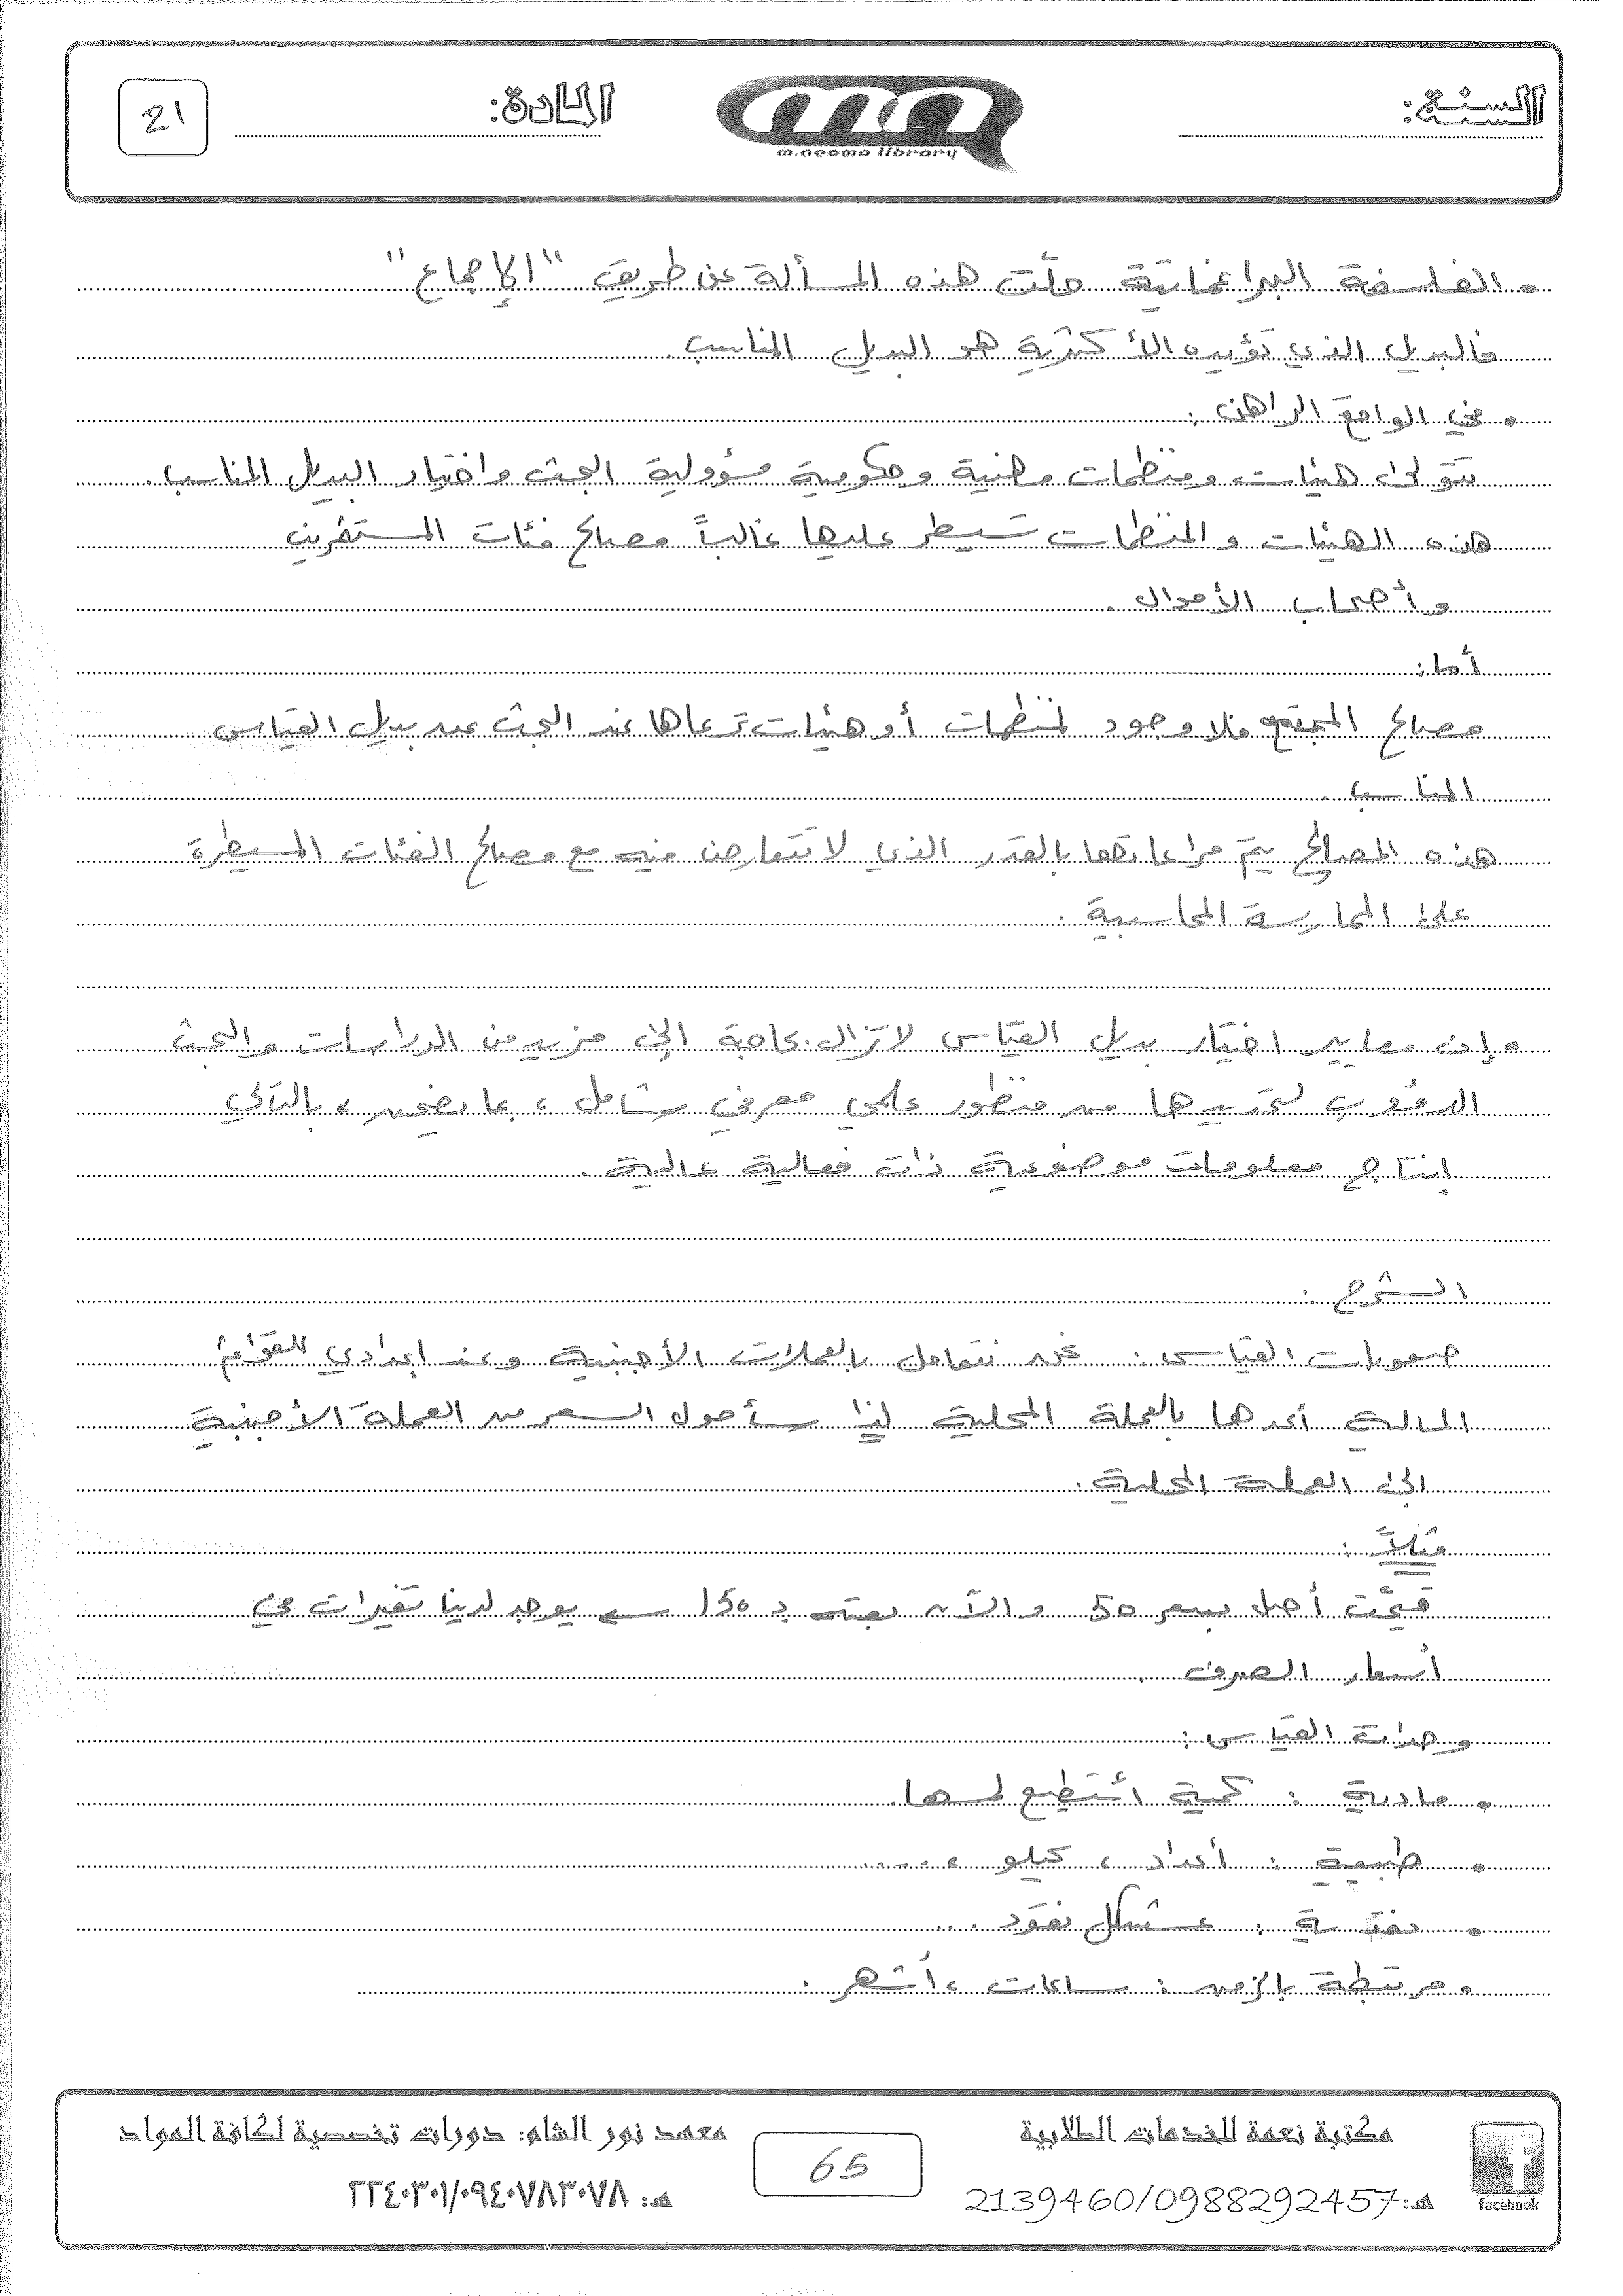 السنة:
المادة:
21
m.neama library
• الفلسفة البراغماتية حلّت هذه المسألة عن طريق "الإجماع"
فالبديل الذي تؤيده الأكثرية هو البديل المناسب.
• في الواقع الراهن:
تتولى هيئات ومنظمات مهنية وحكومية مسؤولية البحث واختيار البديل المناسب.
هذه الهيئات والمنظمات تسيطر عليها غالباً مصالح فئات المستثمرين
وأصحاب الأموال.
أما:
مصالح المجتمع فلا وجود لمنظمات أو هيئات ترعاها عند البحث عن بديل القياس
المناسب.
هذه المصالح يتم مراعاتها بالقدر الذي لا تتعارض فيه مع مصالح الفئات المسيطرة
على الممارسة المحاسبية.
• إن معايير اختيار بديل القياس لا تزال بحاجة إلى مزيد من الدراسات والبحث
الدؤوب لتحديدها من منظور علمي معرفي شامل، بما يضمن، بالتالي
إنتاج معلومات موضوعية ذات فعالية عالية.
الشرح:
صعوبات القياس: نحن نتعامل بالعملات الأجنبية وعند إعدادي للقوائم
المالية أعدها بالعملة المحلية لذا سأحول السعر من العملة الأجنبية
إلى العملة المحلية.
مثلاً:
قيمت أصل بسعر 50 والآن بعته بـ 150 يوجد لدينا تغيرات في
أسعار الصرف.
وحدات القياس:
• مادية: كمية أستطيع لمسها.
• طبيعية: أعداد، كيلو، .....
• نقدية: بشكل نقود ...
• مرتبطة بالزمن: ساعات، أشهر.
مكتبة نعمة للخدمات الطلابية
معهد نور الشام: دورات تخصصية لكافة المواد
65
هـ: 2139460/0988292457
هـ: ٢٢٤٠٣٠١/٠٩٤٠٧٨٣٠٧٨
facebook